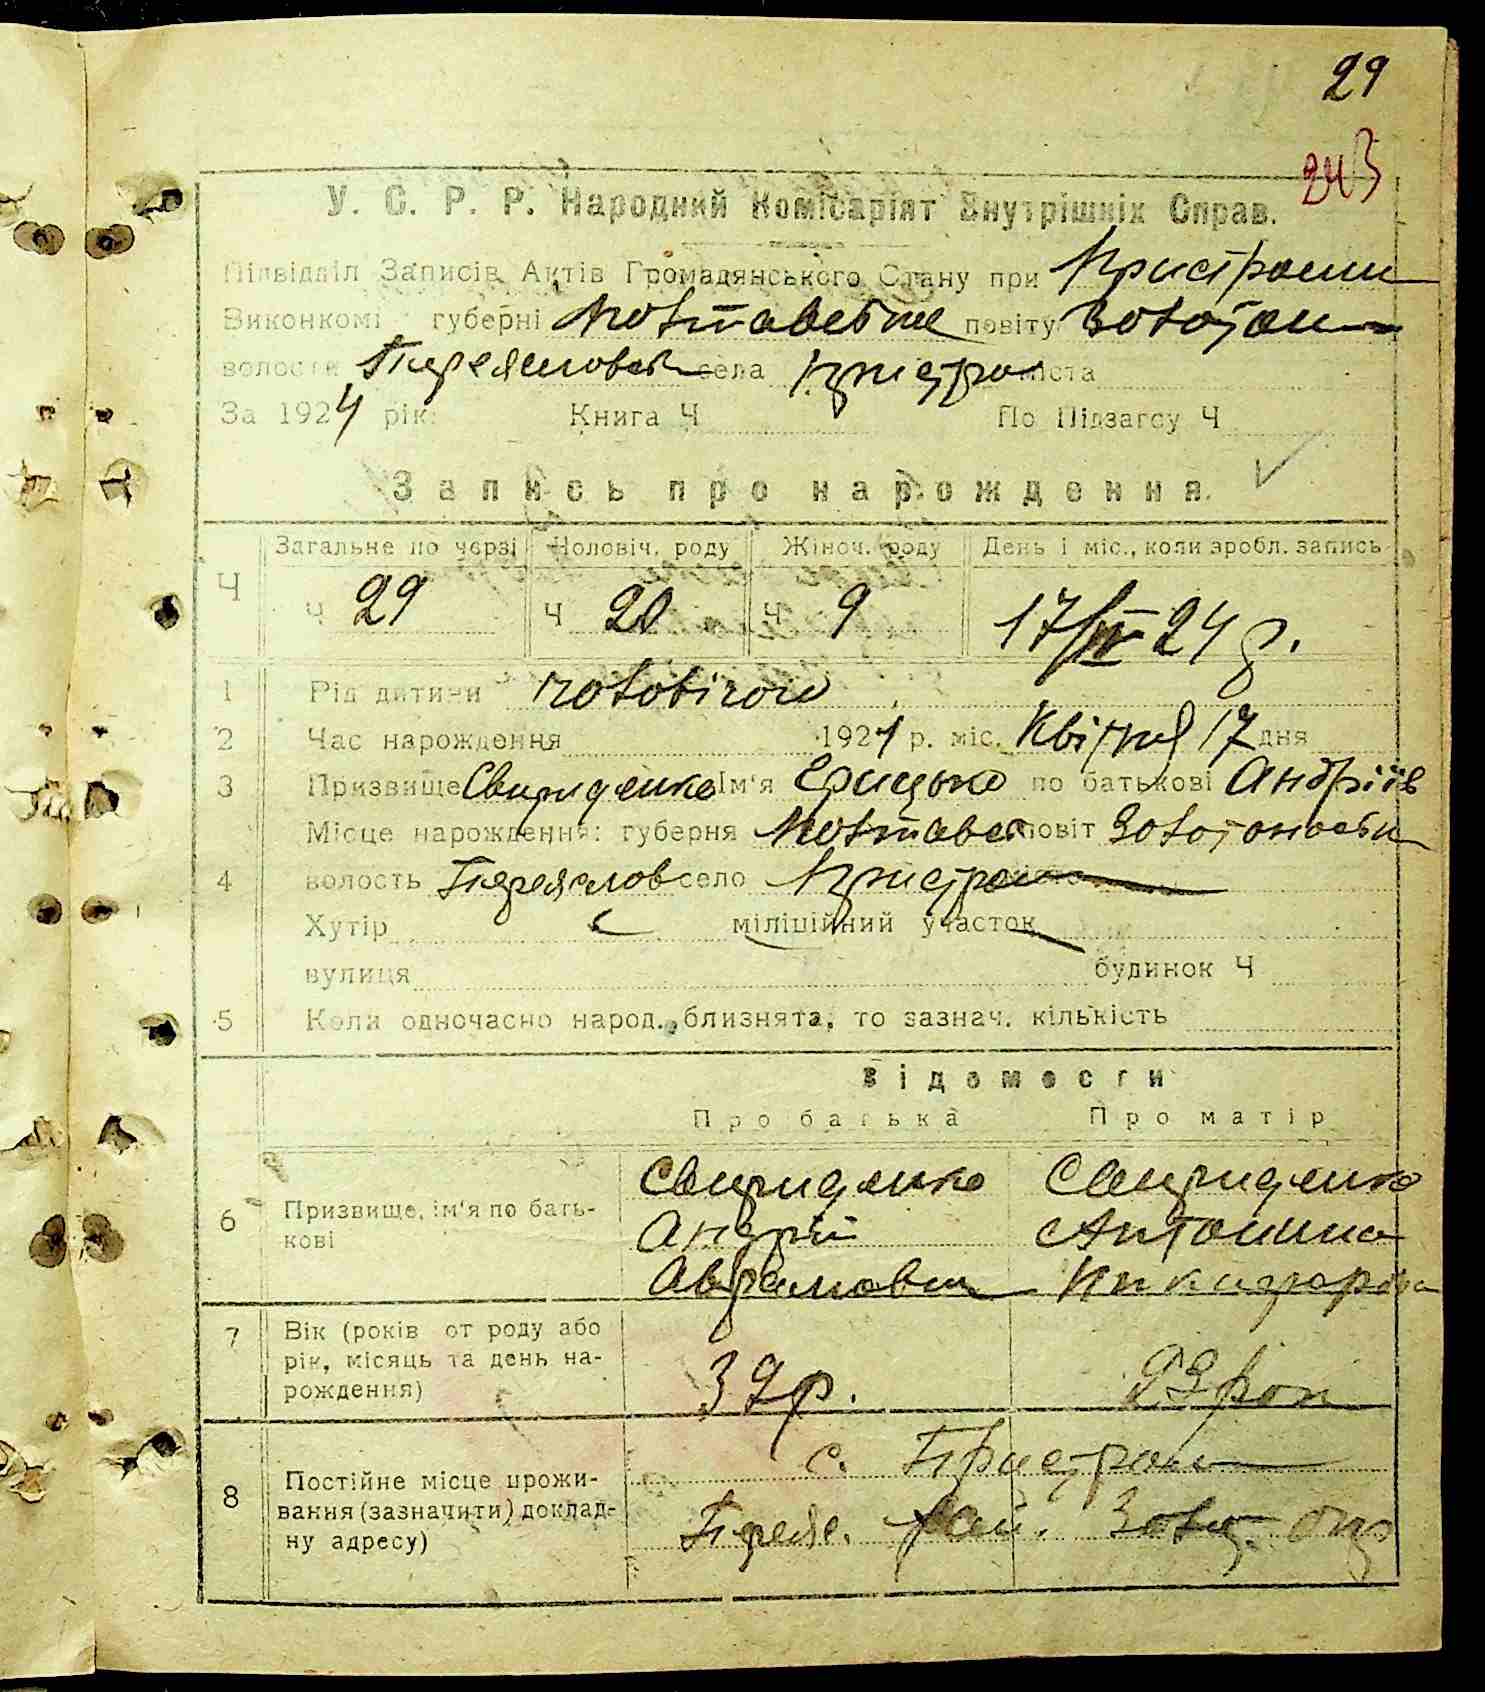 29
243
У. С. Р. Р. Народний Комісаріят Внутрішніх Справ.
Підвідділ Записів Актів Громадянського Стану при Пристроми
Виконкомі губерні Полтавсьше повіту Золотон
волости Переяславсь села Пристро міста
За 1924 рік. Книга Ч По Підзагсу Ч
Запись про народження.
Ч Загальне по черзі Чоловіч. роду Жіноч. роду День і міс., коли зробл. запись
Ч 29 Ч 20 Ч 9 17/IV 24 р.
1 Рід дитини чоловічого
2 Час народження 1924 р. міс. Квітня 17 дня
3 Призвище Свириденко Ім'я Грицько по батькові Андріїв
Місце народження: губерня Полтавсь повіт Золотоноськи
4 волость Переяслов село Пристром
Хутір міліційний участок
вулиця будинок Ч
5 Коли одночасно народ. близнята, то зазнач. кількість
Відомости
Про батька Про матір
6 Призвище, ім'я по бать-
кові
Свириденко Свириденко
Андрій Антонина
Аврамович Никифорівна
7 Вік (років от роду або
рік, місяць та день на-
рождення)
39 р. 23 рок
8 Постійне місце прожи-
вання (зазначити) доклад-
ну адресу)
с. Пристром
Переяс. рай. Золот. окр